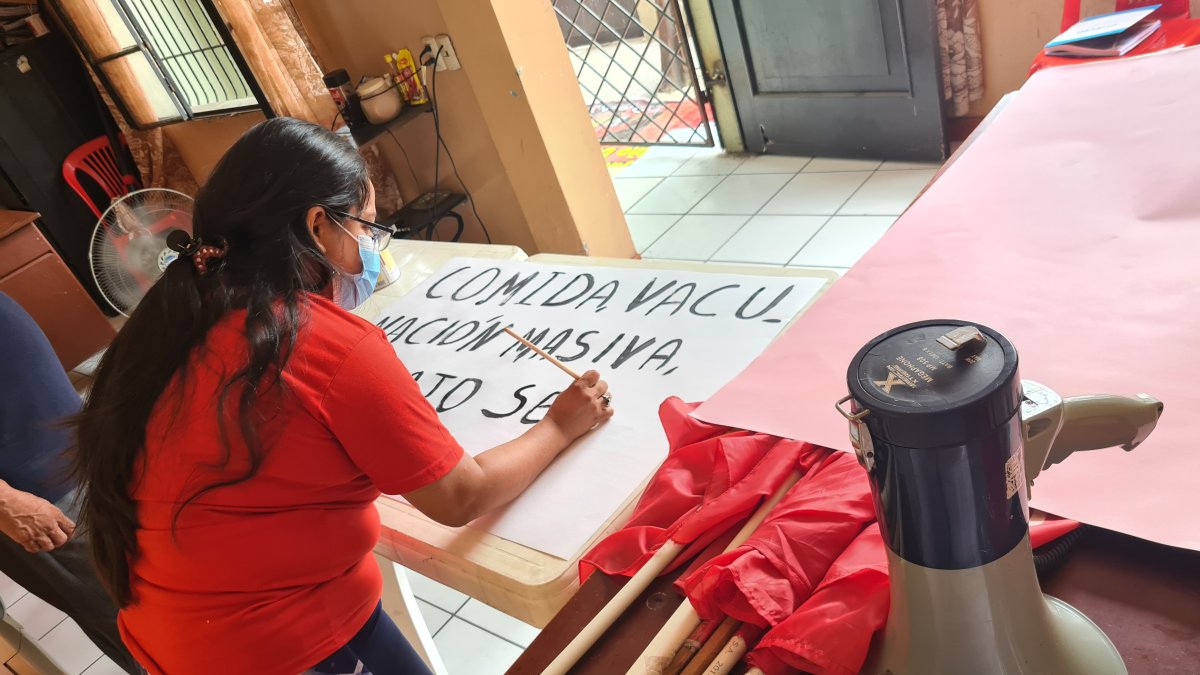 COMIDA, VACU-
NACIÓN MASIVA,
SE
MEGAPHONE